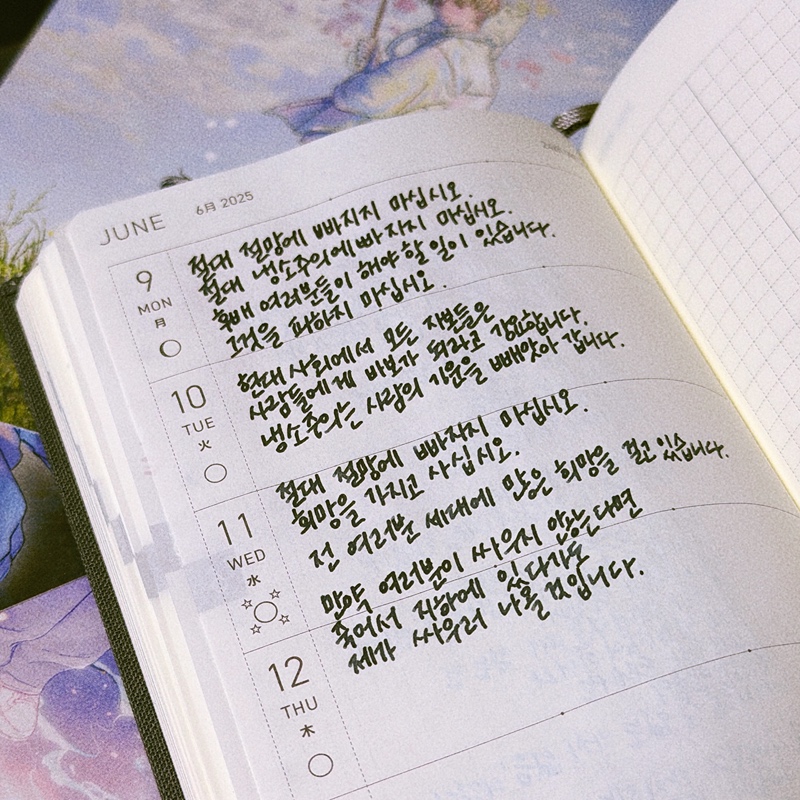 JUNE 6月 2025
9
MON
月
절대 절망에 빠지지 마십시오.
절대 냉소주의에 빠지지 마십시오.
후배 여러분들이 해야 할 일이 있습니다.
그것을 피하지 마십시오.
10
TUE
火
현대 사회에서 모든 정보들은
사람들에게 바보가 되라고 강요합니다.
냉소주의는 사람의 기운을 빼앗아 갑니다.
11
WED
水
절대 절망에 빠지지 마십시오.
희망을 가지고 사십시오.
전 여러분 세대에 많은 희망을 걸고 있습니다.
만약 여러분이 싸우지 않는다면
죽어서 지하에 있다가도
제가 싸우러 나올 것입니다.
12
THU
木